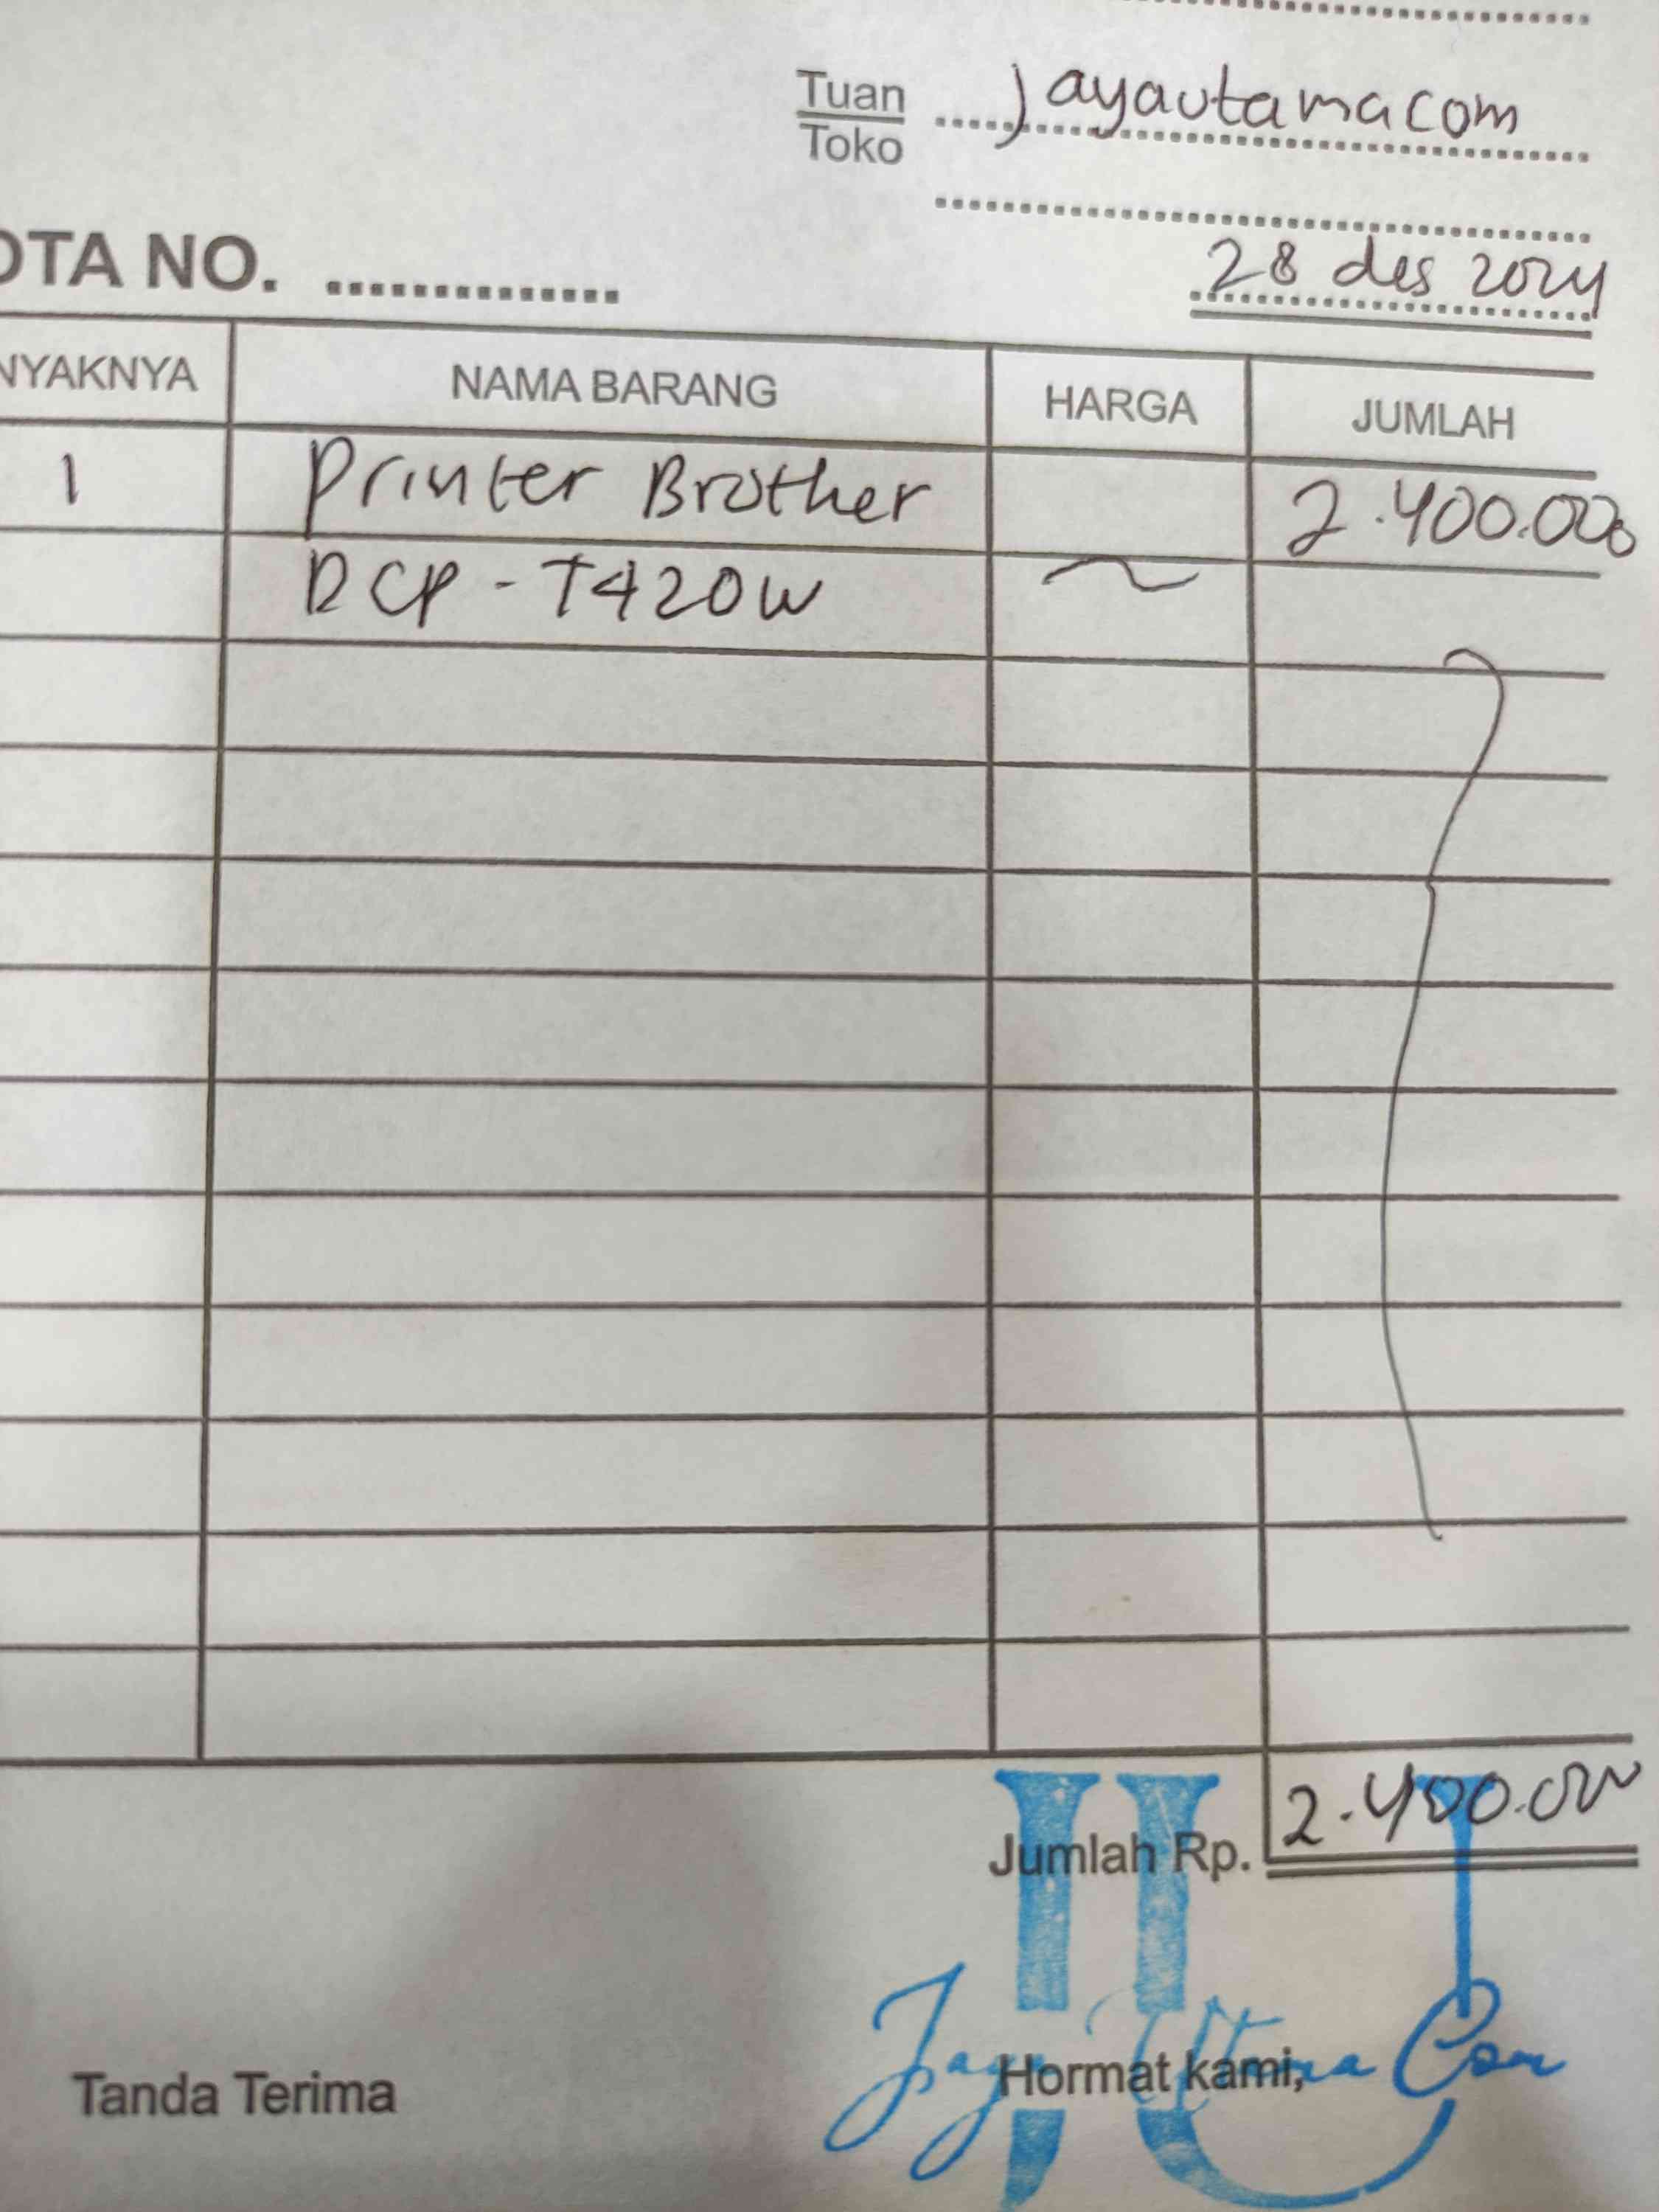 Tuan
Toko
jayautamacom
28 des 2024
OTA NO. ..............
NYAKNYA NAMA BARANG HARGA JUMLAH
1 Printer Brother 2.400.000
DCP - T420W
Jumlah Rp. 2.400.000
JU
Jaya Utama Com
Tanda Terima Hormat kami,